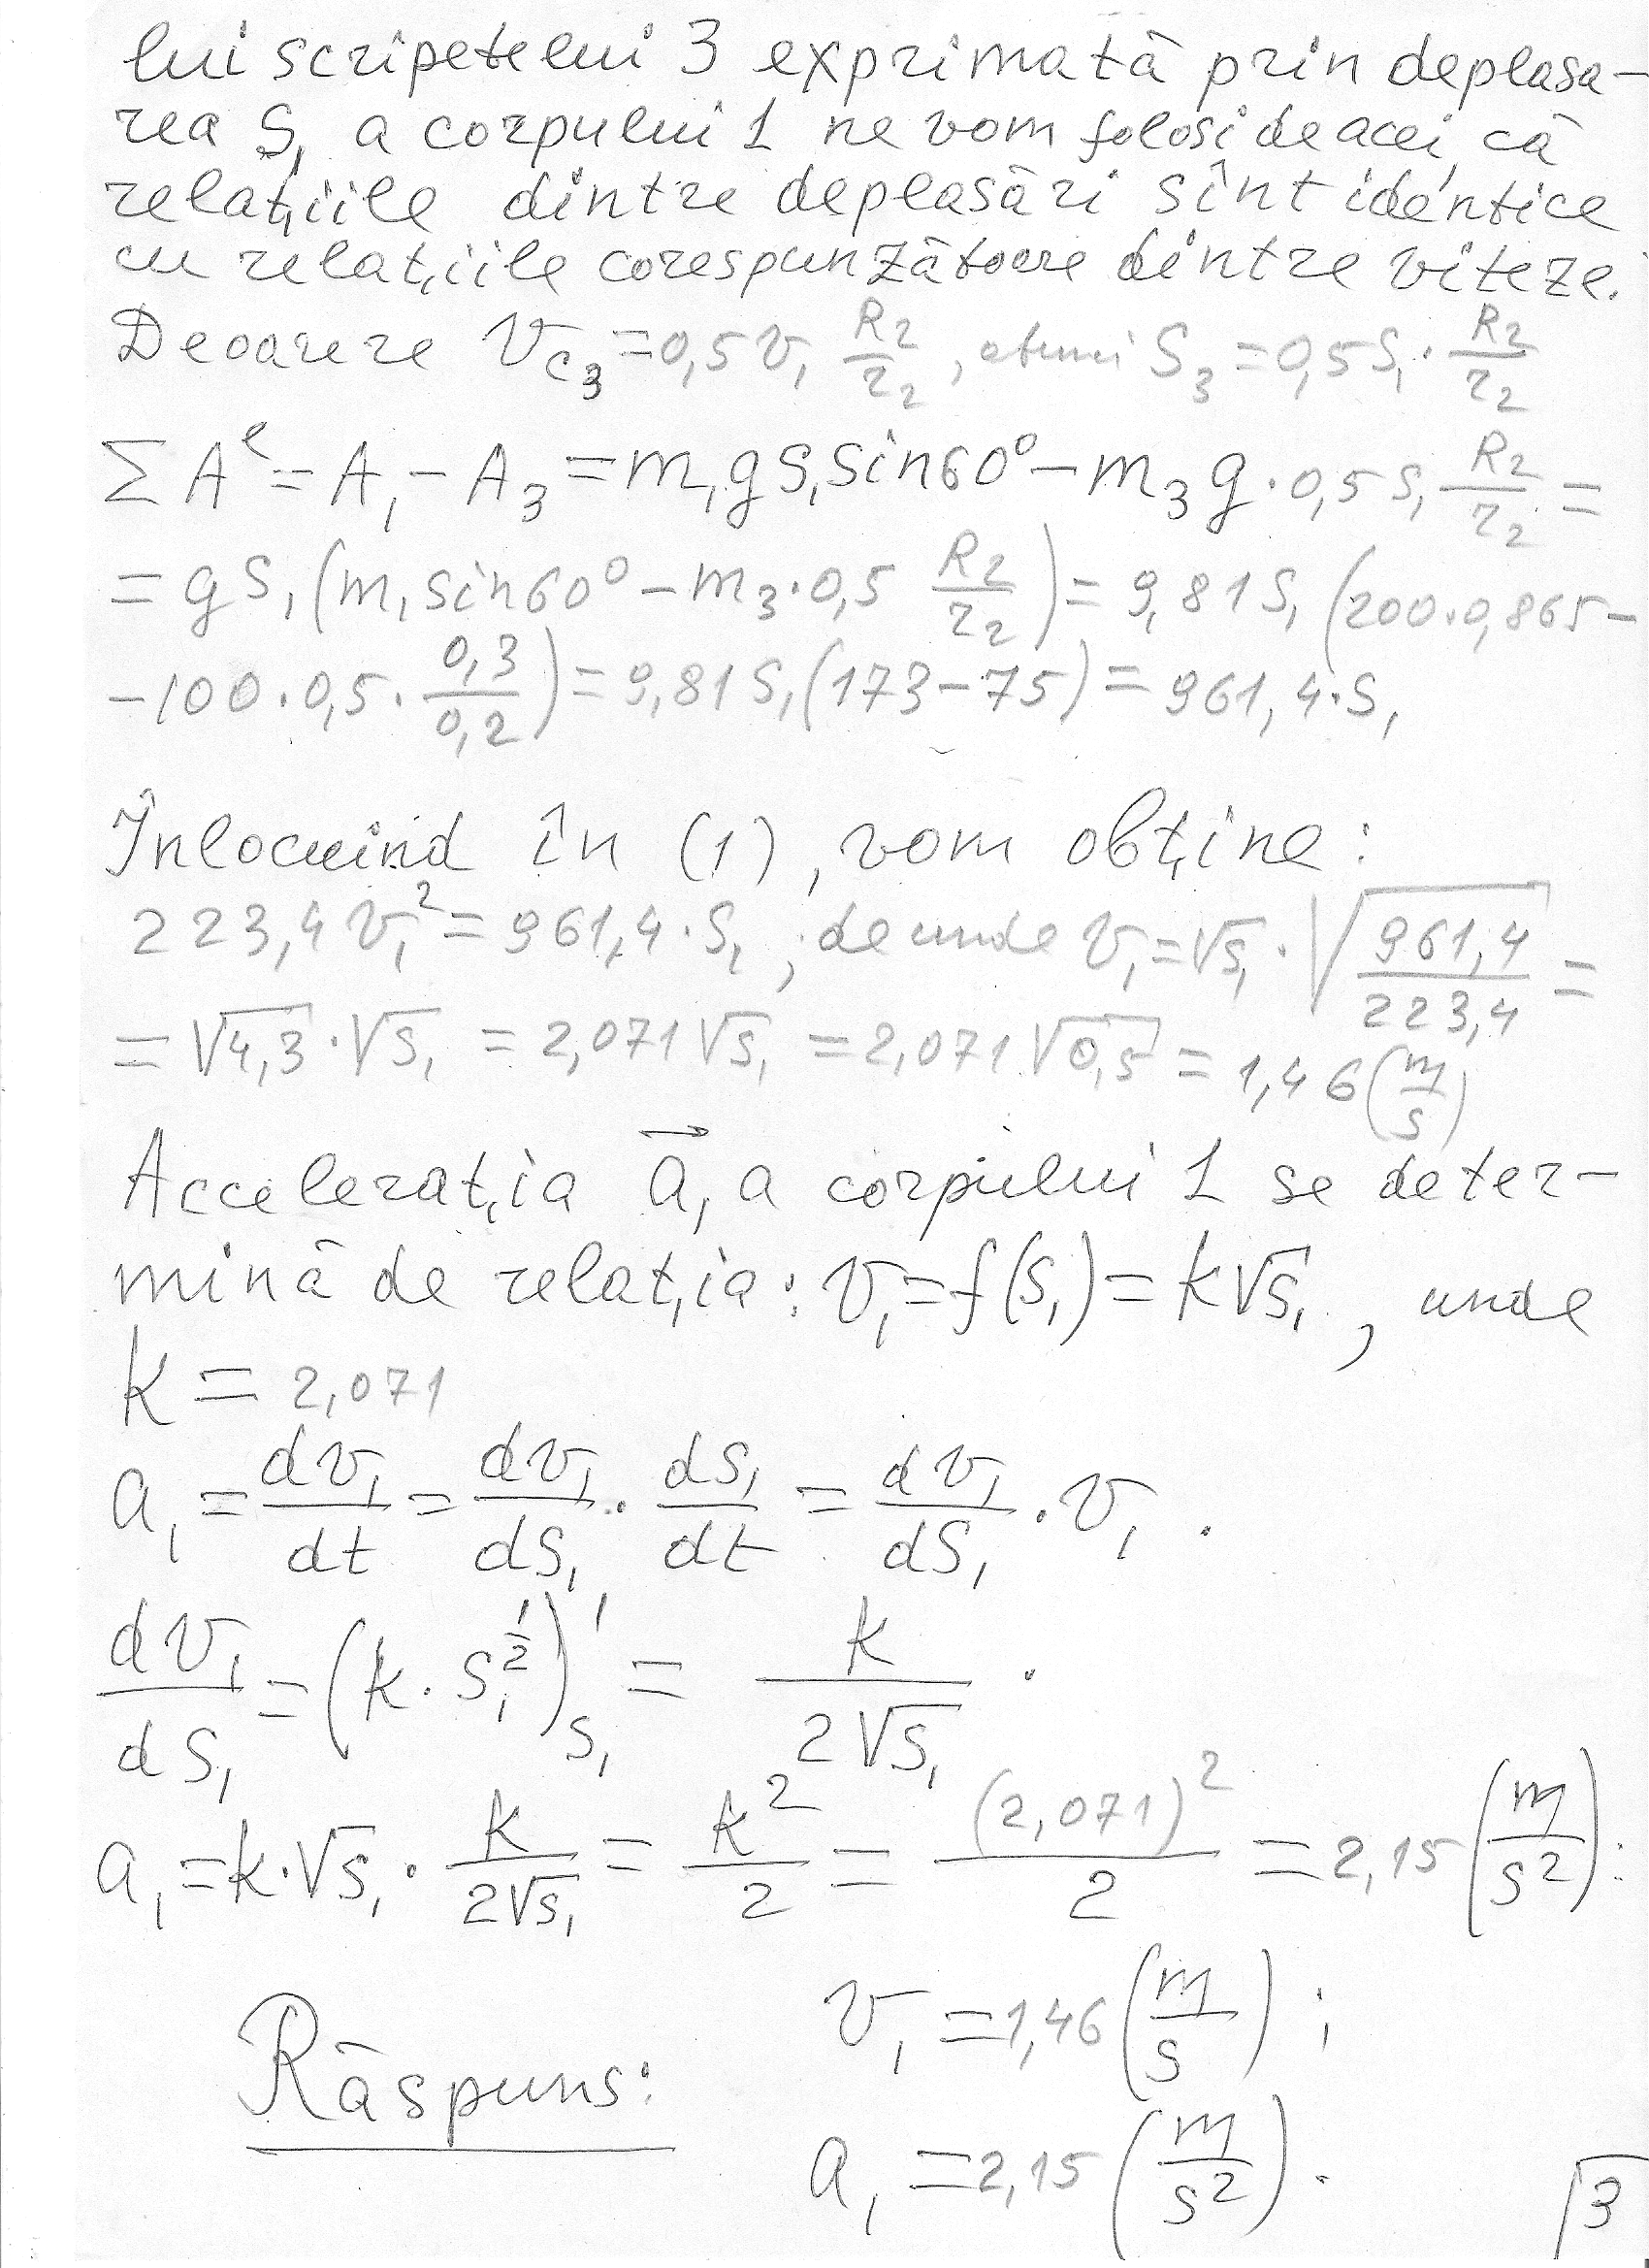 lui scripetelui 3 exprimată prin deplasa-
rea S₁ a corpului 1 ne vom folosi de acei, că
relațiile dintre deplasări sînt identice
cu relațiile corespunzătoare dintre viteze.
Deoarere V_C₃ = 0,5 v₁ R₂/r₂, atunci S₃ = 0,5 S₁ · R₂/r₂
Σ Aᵉ = A₁ - A₃ = m₁gS₁sin60° - m₃g · 0,5 S₁ R₂/r₂ =
= gS₁(m₁sin60° - m₃ · 0,5 R₂/r₂) = 9,81S₁(200 · 0,865 -
- 100 · 0,5 · 0,3/0,2) = 9,81S₁(173 - 75) = 961,4 · S₁
Înlocuind în (1), vom obține:
223,4 v₁² = 961,4 · S₁, de unde v₁ = √S₁ · √(961,4/223,4) =
= √4,3 · √S₁ = 2,071√S₁ = 2,071√0,5 = 1,46(m/s)
Accelerația a⃗₁ a corpului 1 se deter-
mină de relația: v₁ = f(S₁) = k√S₁, unde
k = 2,071
a₁ = dv₁/dt = dv₁/dS₁ · dS₁/dt = dv₁/dS₁ · v₁.
dv₁/dS₁ = (k · S₁^(1/2))'_S₁ = k/(2√S₁).
a₁ = k · √S₁ · k/(2√S₁) = k²/2 = (2,071)²/2 = 2,15(m/s²):
Răspuns:
v₁ = 1,46(m/s);
a₁ = 2,15(m/s²).
3